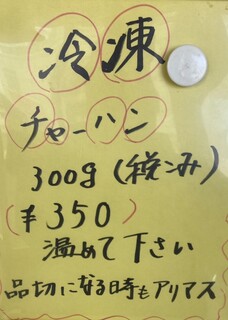 冷凍
チャーハン
300g(税こみ)
(¥350)
温めて下さい
品切になる時もアリマス